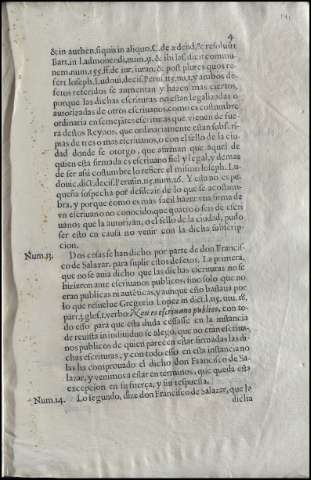 4
& in authen. si quis in aliquo, C. de adend. & resoluit
Bart. in l. admonendi, num. 35. & ibi las dicit commu-
nem, num. 155. ff. de iur. iuran. & post plures quos re-
fert Ioseph. Ludoui. decis. Perusi. 115. nu. 15. y ambos de-
fetos referidos se aumentan y hazen mas ciertos,
porque las dichas escrituras no estan legalizadas o
autorizadas de otros escriuanos, como es costumbre
ordinaria en semejātes escrituras que vienen de fue-
ra destos Reynos, que ordinariamente estan subscri-
ptas de tres o mas escriuanos, o con el sello de la ciu-
dad donde se otorgò, que afirman que aquel de
quien esta firmada es escriuano fiel y legal, y demas
de ser assi costumbre lo refiere el mismo Ioseph. Lu-
douic. dict. decis. Perusin. 115. num. 16. Y esta no es pe-
queña sospecha por desdezir de lo que se acostum-
bra, y porque como es mas facil hazer vna firma de
vn escriuano no conocido, que quatro o seis de escri-
uanos que la autorizan, o el sello de la ciudad, pudo
ser esto en causa no venir con la dicha subscrip-
cion.
Num.13. Dos cosas se han dicho por parte de don Francis-
co de Salazar, para suplir estos defetos. La primera,
que no se auia dicho que las dichas escrituras no se
hiziessen ante escriuanos publicos, sino solo que no
eran publicas ni autēticas, y aunque esto bastaua por
lo que resuelue Gregorio Lopez in dict. l. 115. titu. 18.
part. 3. glos. 1. verbo: Que es escriuano publico, con to-
do esso para que esta duda cessasse en la instancia
de reuista in indiuiduo se alegò, que no erā escriua-
nos publicos de quien parecen estar firmadas las di-
chas escrituras, y con todo esso en esta instancia no
las ha comprouado el dicho don Francisco de Sa-
lazar, y venimos a estar en terminos, que queda esta
excepcion en su fuerça, y sin respuesta.
Num.14. Lo segundo, dize don Francisco de Salazar, que le
dicha